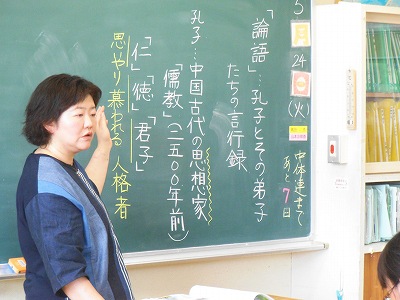 5
24
(火)
中体連まで
あと7日
「論語」…孔子とその弟子
たちの言行録
孔子…中国古代の思想家
「儒教」(二五〇〇年前)
「仁」「徳」「君子」
思やり 慕われる 人格者